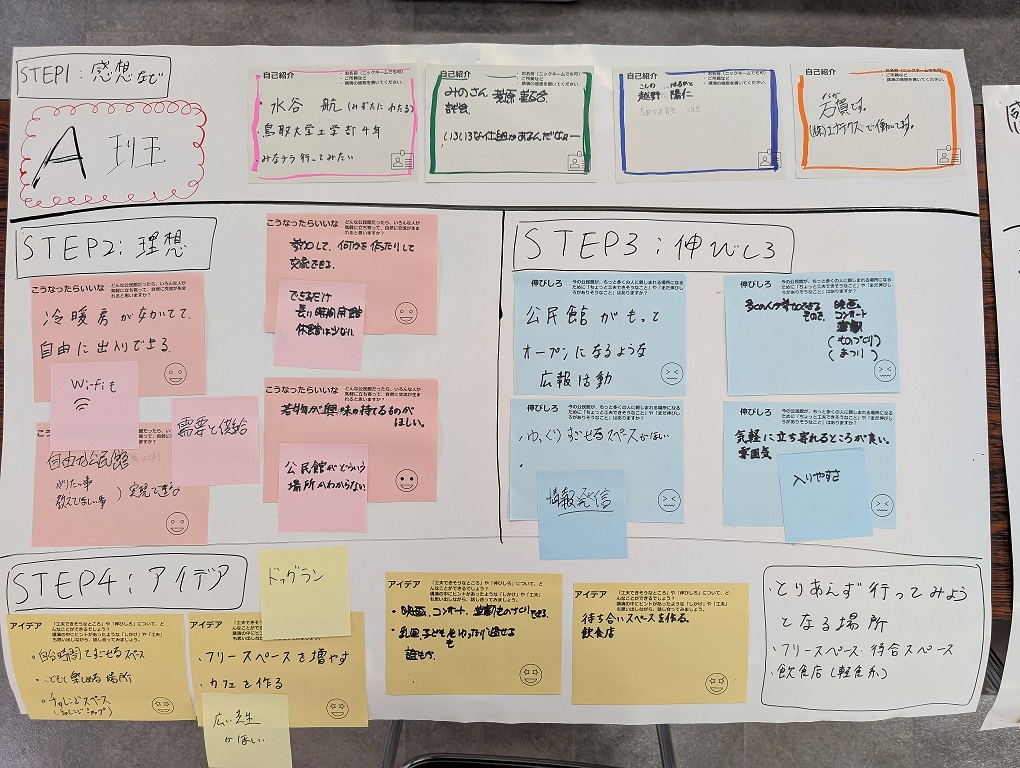 STEP1:感想など
A班
自己紹介
・お名前(ニックネームでも可)
・ご所属など
・講演の感想を書いてください。
・水谷 航(みずたに わたる)
・鳥取大学工学部4年
・みなテラ行ってみたい
自己紹介
・お名前(ニックネームでも可)
・ご所属など
・講演の感想を書いてください。
みのさん
いろいろな仕組があるんだなー
自己紹介
・お名前(ニックネームでも可)
・ご所属など
・講演の感想を書いてください。
こしの はるひと
越野 陽仁
自己紹介
・お名前(ニックネームでも可)
・ご所属など
・講演の感想を書いてください。
です。
で働いてます。
STEP2:理想
こうなったらいいな
どんな公民館だったら、いろんな人が
気軽に立ち寄って、自然に交流が生ま
れると思いますか?
参加して、何かを借りたりして
交流できる。
できるだけ
長い時間開館
休館日は少ない。
こうなったらいいな
どんな公民館だったら、いろんな人が
気軽に立ち寄って、自然に交流が生ま
れると思いますか?
冷暖房がきいてて、
自由に出入りできる.
Wi-Fiも
需要と供給
自由な公民館
やりたい事
教えてほしい事
実現できる
こうなったらいいな
どんな公民館だったら、いろんな人が
気軽に立ち寄って、自然に交流が生ま
れると思いますか?
若者が興味の持てるものが
ほしい。
公民館がどういう
場所かわからない
STEP3:伸びしろ
伸びしろ
今の公民館が、もっと多くの人に親しまれる場所になる
ために「ちょっと工夫できそうなこと」や「まだ伸びし
ろがありそうなこと」はありますか?
公民館がもって
オープンになるような
広報活動
伸びしろ
今の公民館が、もっと多くの人に親しまれる場所になる
ために「ちょっと工夫できそうなこと」や「まだ伸びし
ろがありそうなこと」はありますか?
多くの人が
映画
コンサート
(ものづくり)
(まつり)
伸びしろ
今の公民館が、もっと多くの人に親しまれる場所になる
ために「ちょっと工夫できそうなこと」や「まだ伸びし
ろがありそうなこと」はありますか?
・ゆっくりすごせるスペースがほしい
・
情報発信
伸びしろ
今の公民館が、もっと多くの人に親しまれる場所になる
ために「ちょっと工夫できそうなこと」や「まだ伸びし
ろがありそうなこと」はありますか?
気軽に立ち寄れるところが良い。
雰囲気
入りやすさ
STEP4:アイデア
アイデア
「工夫できそうなところ」や「伸びしろ」について、ど
んなことができるでしょう?
講演の中にヒントがあったような「しかけ」や「工夫」
も思い出しながら、話し合ってみましょう。
・自分時間ですごせるスペース
・こどもも楽しめる場所
・チャレンジスペース
(チャレンジショップ)
ドッグラン
アイデア
「工夫できそうなところ」や「伸びしろ」について、ど
んなことができるでしょう?
講演の中にヒントがあったような「しかけ」や「工夫」
も思い出しながら、話し合ってみましょう。
・フリースペースを増やす
・カフェを作る
広い芝生
がほしい
アイデア
「工夫できそうなところ」や「伸びしろ」について、ど
んなことができるでしょう?
講演の中にヒントがあったような「しかけ」や「工夫」
も思い出しながら、話し合ってみましょう。
・映画、コンサート、ものづくりできる。
・乳児、子どももゆったり過せる
も
誰もが、
アイデア
「工夫できそうなところ」や「伸びしろ」について、ど
んなことができるでしょう?
講演の中にヒントがあったような「しかけ」や「工夫」
も思い出しながら、話し合ってみましょう。
待ち合いスペースを作る。
飲食店
とりあえず行ってみよう
となる場所
・フリースペース・待合スペース
・飲食店(軽食系)